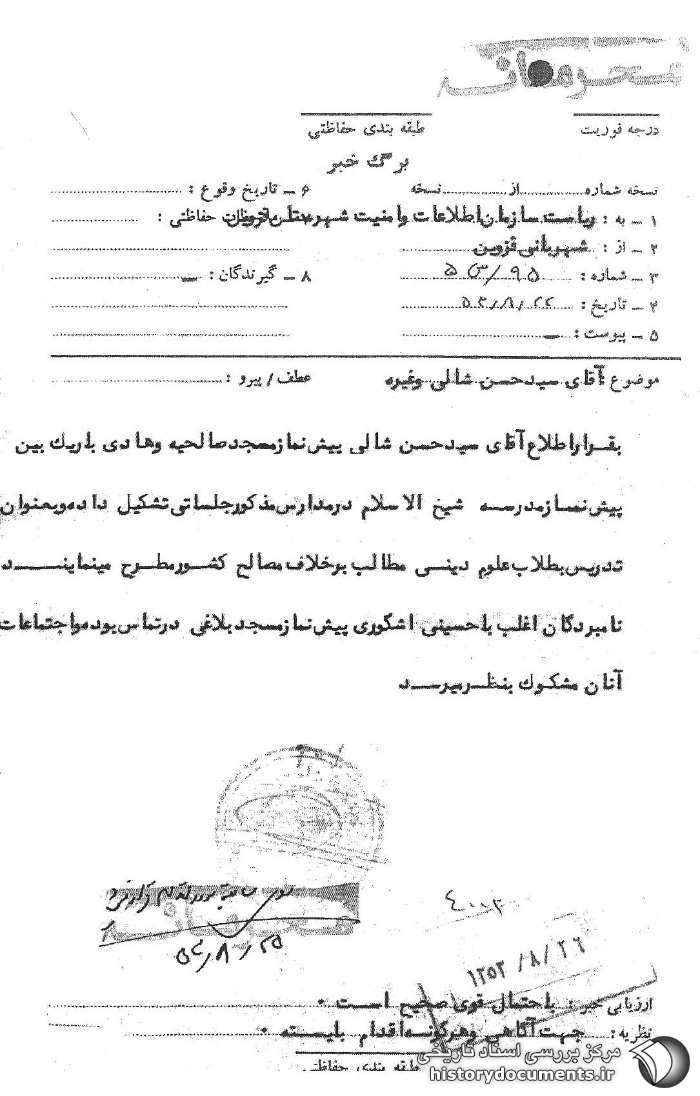 محرمانه
درجه فوریت
طبقه بندی حفاظتی
برگ خبر
نسخه شماره از نسخه
۱ ـ به : ریاست سازمان اطلاعات و امنیت شهرستان قزوین
۲ ـ از : شهربانی قزوین
۳ ـ شماره : ۹۵/
۴ ـ تاریخ :
۵ ـ پیوست : ـ
۶ ـ تاریخ وقوع :
حفاظتی :
۸ ـ گیرندگان : ـ
موضوع : آقای سید حسن شالی وغیره
عطف / پیرو :
بقرار اطلاع آقای سید حسن شالی پیش نماز مسجد صالحیه و هادی باریك بین
پیش نماز مدرسه شیخ الاسلام در مدارس مذکور جلساتی تشکیل داده و بعنوان
تدریس بطلاب علوم دینی مطالب بر خلاف مصالح کشور مطرح مینماینـــد
نامبردگان اغلب با حسینی اشکوری پیش نماز مسجد بلاغی در تماس بوده و اجتماعات
آنان مشکوك بنظر میرسـد
محرمانه
۱۳۵۳/۸/۲۶
ارزیابی خبر : باحتمال قوی صحیح است ۰
نظریه : جهت آگاهی و هرگونه اقدام بایسته ۰
طبقه بندی حفاظتی
مرکز بررسی اسناد تاریخی
historydocuments.ir